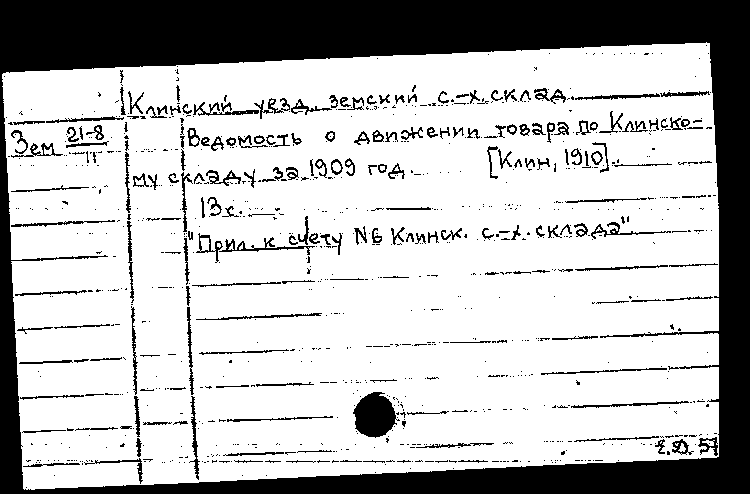 Клинский уезд. земский с.-х. склад
Зем 21-8/11
Ведомость о движении товара по Клинско-
му складу за 1909 год. [Клин, 1910].
13 с.
"Прил. к счету №6 Клинск. с.-х. склада".
Е.Д. 57